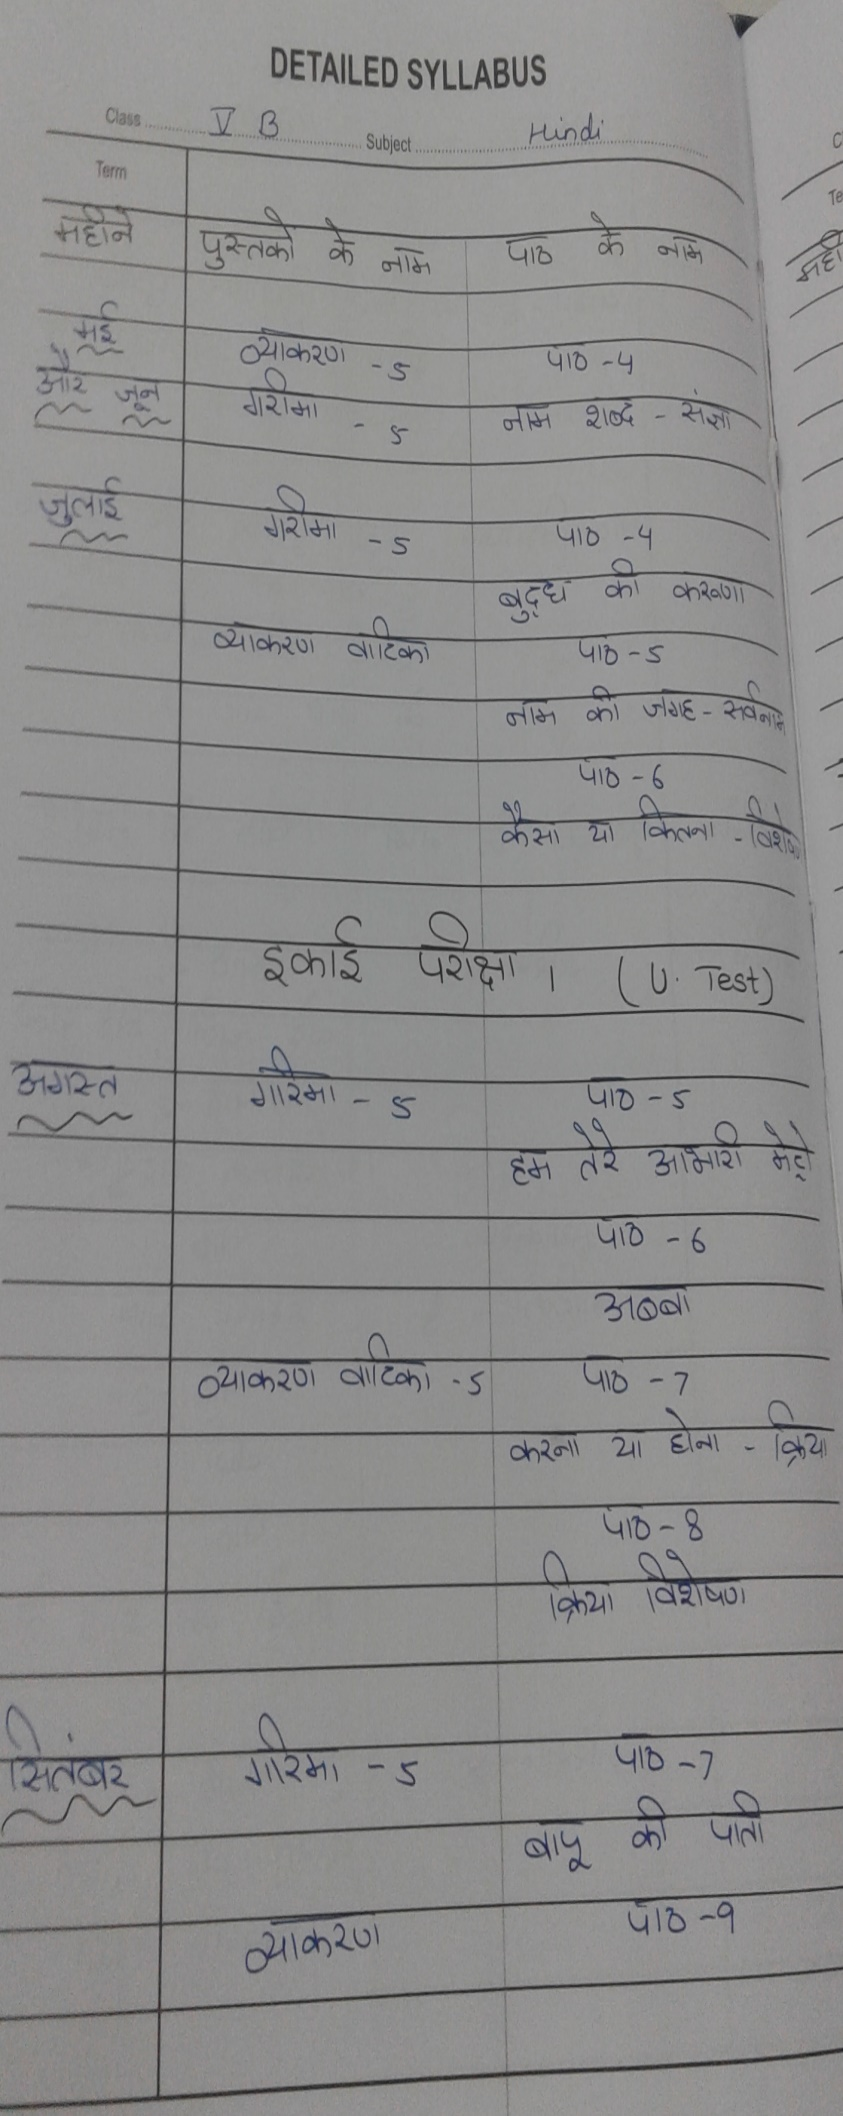 DETAILED SYLLABUS
Class V B Subject Hindi
Term
महीने पुस्तको के नाम पाठ के नाम
मई व्याकरण - 5 पाठ - 4
और जून गरीमा - 5 नाम शब्द - संज्ञा
जुलाई गरीमा - 5 पाठ - 4
बुद्ध की करुणा
व्याकरण वाटिका पाठ - 5
नाम की जगह - सर्वनाम
पाठ - 6
कैसा या कितना -
इकाई परीक्षा । (U. Test)
अगस्त गरिमा - 5 पाठ - 5
हम तेरे आभारी
पाठ - 6
अब्बा
व्याकरण वाटिका - 5 पाठ - 7
करना या होना - क्रिया
पाठ - 8
क्रिया विशेषण
सितंबर गरिमा - 5 पाठ - 7
बापू की पाती
व्याकरण पाठ - 9